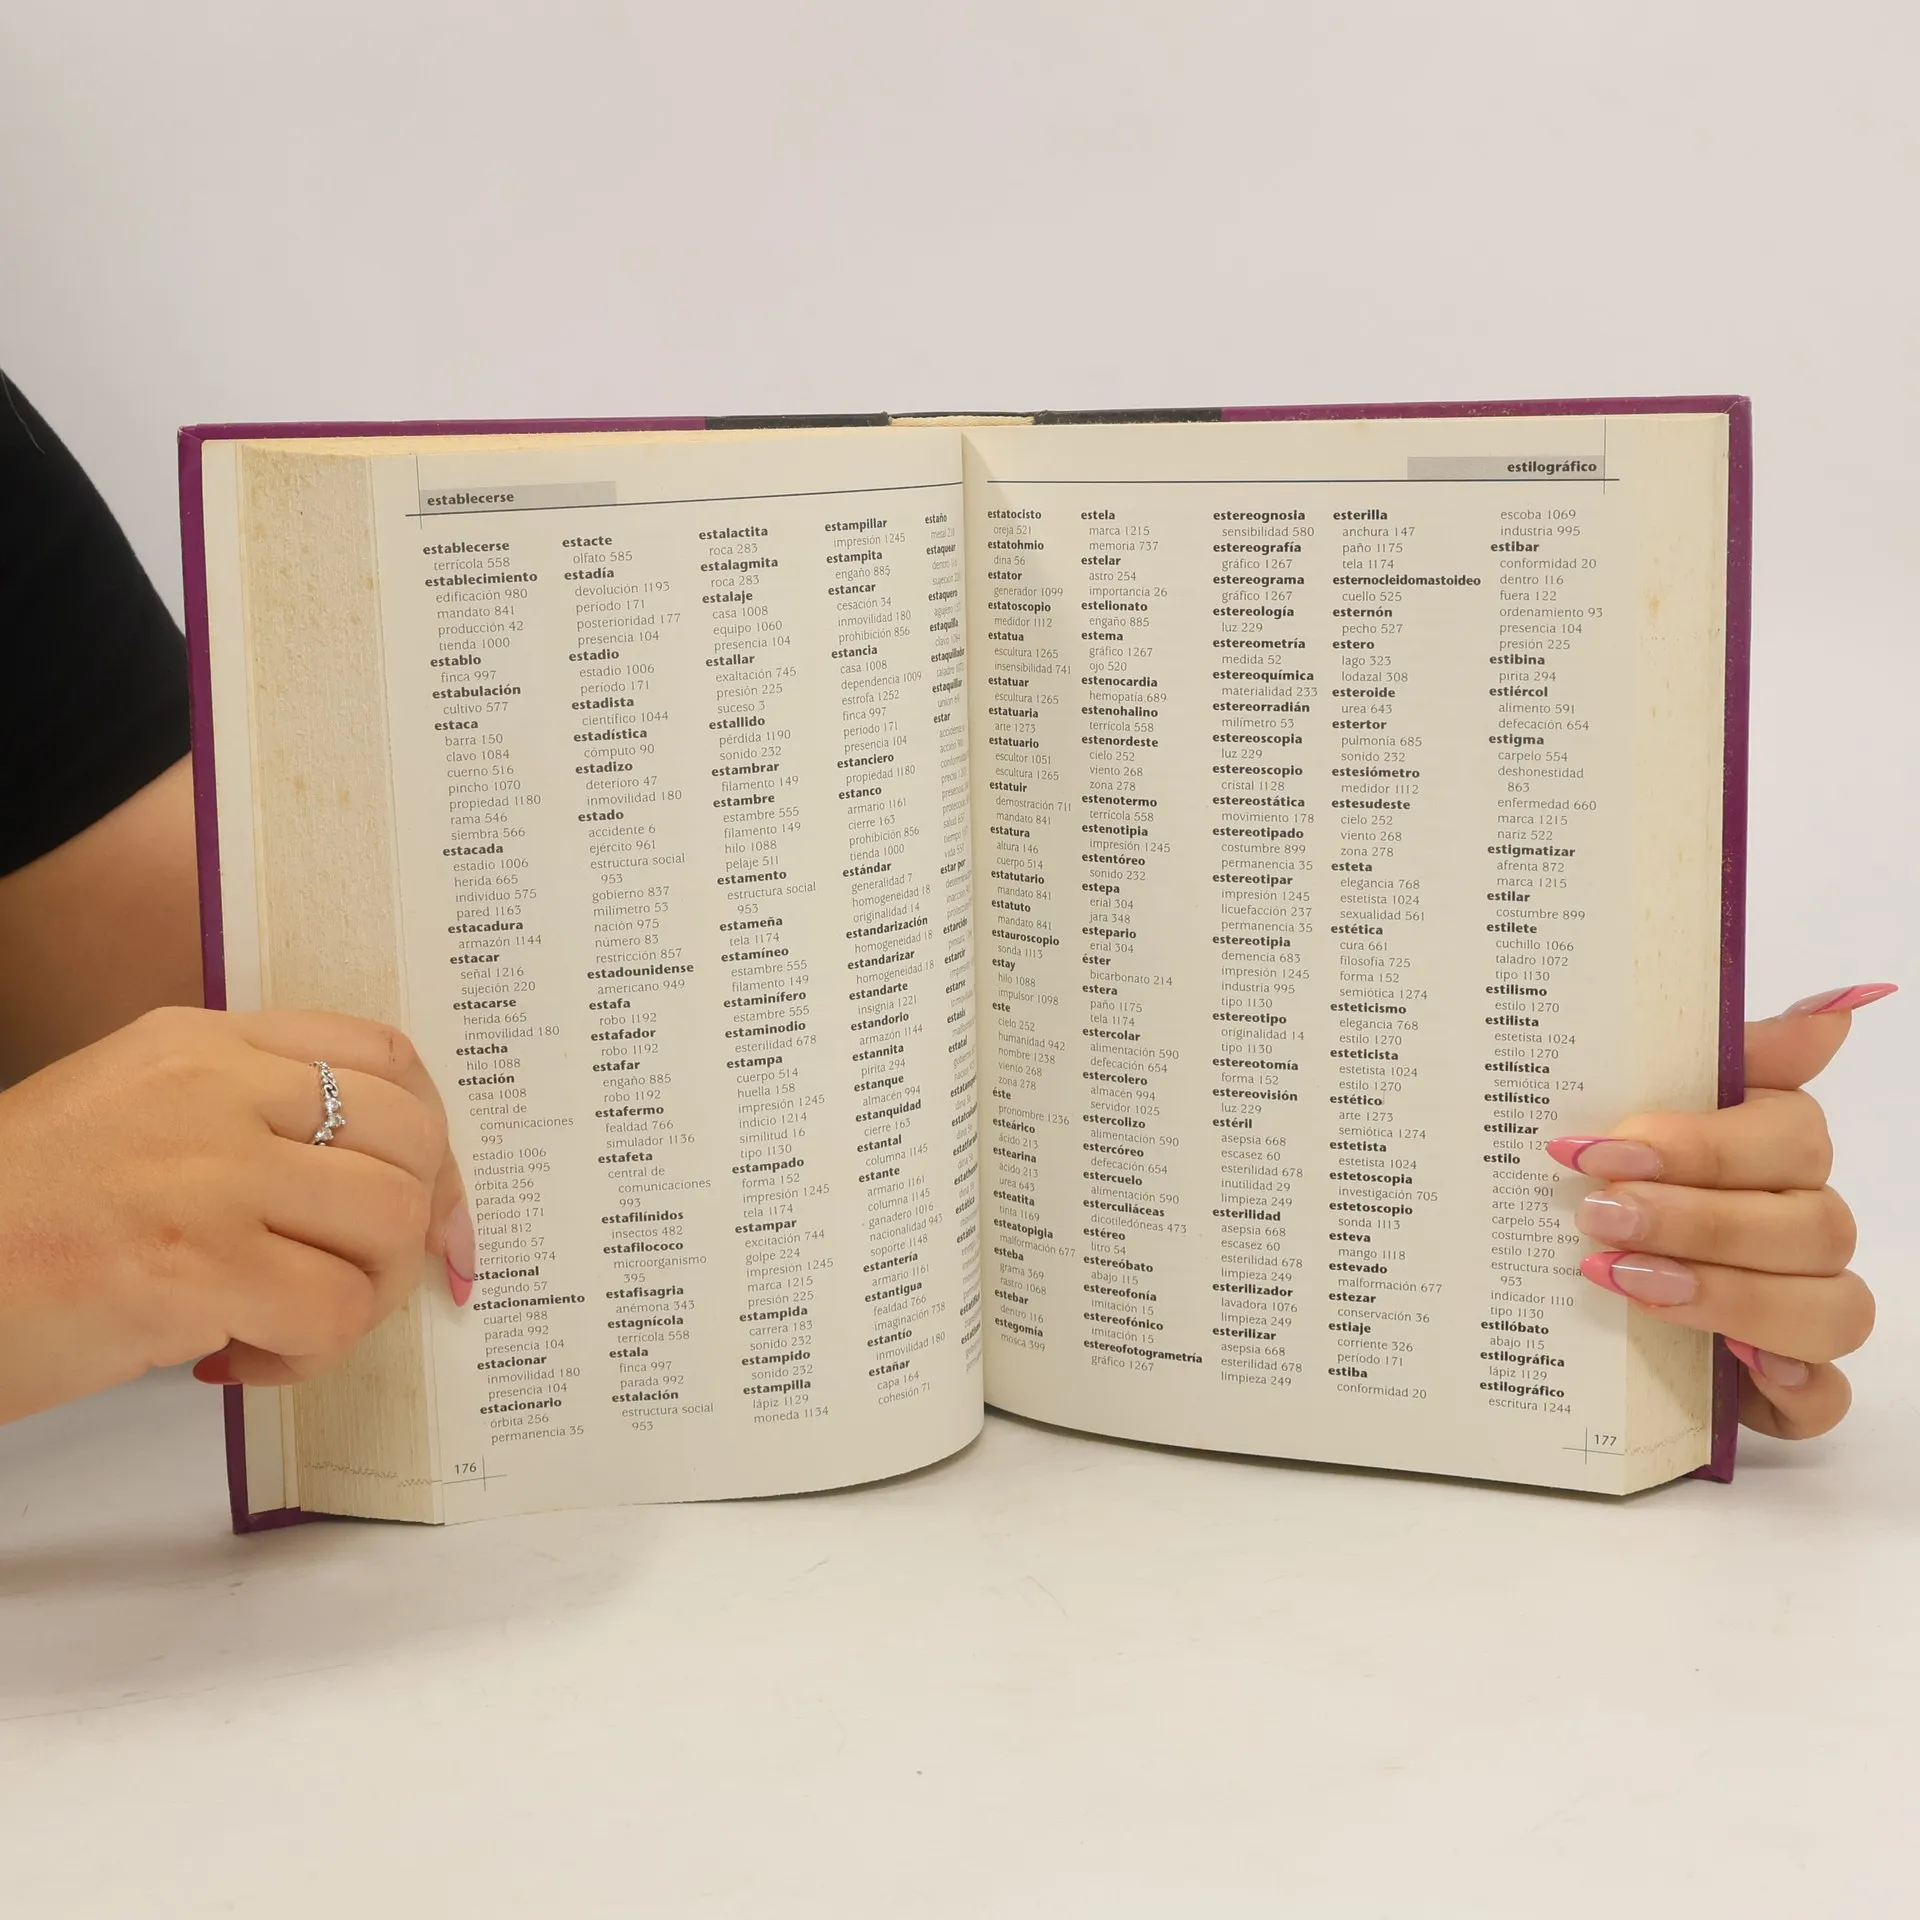 establecerse
establecerse
terrícola 558
establecimiento
edificación 980
mandato 841
producción 42
tienda 1000
establo
finca 997
estabulación
cultivo 577
estaca
barra 150
clavo 1084
cuerno 516
pincho 1070
propiedad 1180
rama 546
siembra 566
estacada
estadio 1006
herida 665
individuo 575
pared 1163
estacadura
armazón 1144
estacar
señal 1216
sujeción 220
estacarse
herida 665
inmovilidad 180
estacha
hilo 1088
estación
casa 1008
central de
comunicaciones
993
estadio 1006
industria 995
órbita 256
parada 992
período 171
ritual 812
segundo 57
territorio 974
estacional
segundo 57
estacionamiento
cuartel 988
parada 992
presencia 104
estacionar
inmovilidad 180
presencia 104
estacionario
órbita 256
permanencia 35
estacte
olfato 585
estadía
devolución 1193
período 171
posterioridad 177
presencia 104
estadio
estadio 1006
período 171
estadista
científico 1044
estadística
cómputo 90
estadizo
deterioro 47
inmovilidad 180
estado
accidente 6
ejército 961
estructura social
953
gobierno 837
milímetro 53
nación 975
número 83
restricción 857
estadounidense
americano 949
estafa
robo 1192
estafador
robo 1192
estafar
engaño 885
robo 1192
estafermo
fealdad 766
simulador 1136
estafeta
central de
comunicaciones
993
estafilínidos
insectos 482
estafilococo
microorganismo
395
estafisagria
anémona 343
estagnícola
terrícola 558
estala
finca 997
parada 992
estalación
estructura social
953
estalactita
roca 283
estalagmita
roca 283
estalaje
casa 1008
equipo 1060
presencia 104
estallar
exaltación 745
presión 225
suceso 3
estallido
pérdida 1190
sonido 232
estambrar
filamento 149
estambre
estambre 555
filamento 149
hilo 1088
pelaje 511
estamento
estructura social
953
estameña
tela 1174
estamíneo
estambre 555
filamento 149
estaminífero
estambre 555
estaminodio
esterilidad 678
estampa
cuerpo 514
huella 158
impresión 1245
indicio 1214
similitud 16
tipo 1130
estampado
forma 152
impresión 1245
tela 1174
estampar
excitación 744
golpe 224
impresión 1245
marca 1215
presión 225
estampida
carrera 183
sonido 232
estampido
sonido 232
estampilla
lápiz 1129
moneda 1134
estampillar
impresión 1245
estampita
engaño 885
estancar
cesación 34
inmovilidad 180
prohibición 856
estancia
casa 1008
dependencia 1009
estrofa 1252
finca 997
período 171
presencia 104
estanciero
propiedad 1180
estanco
armario 1161
cierre 163
prohibición 856
tienda 1000
estándar
generalidad 7
homogeneidad 18
originalidad 14
estandarización
homogeneidad 18
estandarizar
homogeneidad 18
estandarte
insignia 1221
estandorio
armazón 1144
estannita
pirita 294
estanque
almacén 994
estanquidad
cierre 163
estantal
columna 1145
estante
armario 1161
columna 1145
ganadero 1016
nacionalidad 943
soporte 1148
estantería
armario 1161
estantigua
fealdad 766
imaginación 738
estantío
inmovilidad 180
estañar
capa 164
cohesión 71
estaño
estaquear
estaquero
estaquilla
estaquillador
estaquillar
estar
estar por
estarcido
estarcir
estarse
estasis
estatal
176
estilográfico
estatocisto
oreja 521
estatohmio
dina 56
estator
generador 1099
estatoscopio
medidor 1112
estatua
escultura 1265
insensibilidad 741
estatuar
escultura 1265
estatuaria
arte 1273
estatuario
escultor 1051
escultura 1265
estatuir
demostración 711
mandato 841
estatura
altura 146
cuerpo 514
estatutario
mandato 841
estatuto
mandato 841
estauroscopio
sonda 1113
estay
hilo 1088
impulsor 1098
este
cielo 252
humanidad 942
nombre 1238
viento 268
zona 278
éste
pronombre 1236
esteárico
ácido 213
estearina
ácido 213
urea 643
esteatita
tinta 1169
esteatopigia
malformación 677
esteba
grama 369
rastro 1068
estebar
dentro 116
estegomía
mosca 399
estela
marca 1215
memoria 737
estelar
astro 254
importancia 26
estelionato
engaño 885
estema
gráfico 1267
ojo 520
estenocardia
hemopatía 689
estenohalino
terrícola 558
estenordeste
cielo 252
viento 268
zona 278
estenotermo
terrícola 558
estenotipia
impresión 1245
estentóreo
sonido 232
estepa
erial 304
jara 348
estepario
erial 304
éster
bicarbonato 214
estera
paño 1175
tela 1174
estercolar
alimentación 590
defecación 654
estercolero
almacén 994
servidor 1025
estercolizo
alimentación 590
estercóreo
defecación 654
estercuelo
alimentación 590
esterculiáceas
dicotiledóneas 473
estéreo
litro 54
estereóbato
abajo 115
estereofonía
imitación 15
estereofónico
imitación 15
estereofotogrametría
gráfico 1267
estereognosia
sensibilidad 580
estereografía
gráfico 1267
estereograma
gráfico 1267
estereología
luz 229
estereometría
medida 52
estereoquímica
materialidad 233
estereorradián
milímetro 53
estereoscopia
luz 229
estereoscopio
cristal 1128
estereostática
movimiento 178
estereotipado
costumbre 899
permanencia 35
estereotipar
impresión 1245
licuefacción 237
permanencia 35
estereotipia
demencia 683
impresión 1245
industria 995
tipo 1130
estereotipo
originalidad 14
tipo 1130
estereotomía
forma 152
estereovisión
luz 229
estéril
asepsia 668
escasez 60
esterilidad 678
inutilidad 29
limpieza 249
esterilidad
asepsia 668
escasez 60
esterilidad 678
limpieza 249
esterilizador
lavadora 1076
limpieza 249
esterilizar
asepsia 668
esterilidad 678
limpieza 249
esterilla
anchura 147
paño 1175
tela 1174
esternocleidomastoideo
cuello 525
esternón
pecho 527
estero
lago 323
lodazal 308
esteroide
urea 643
estertor
pulmonía 685
sonido 232
estesiómetro
medidor 1112
estesudeste
cielo 252
viento 268
zona 278
esteta
elegancia 768
estetista 1024
sexualidad 561
estética
cura 661
filosofía 725
forma 152
semiótica 1274
esteticismo
elegancia 768
estilo 1270
esteticista
estetista 1024
estilo 1270
estético
arte 1273
semiótica 1274
estetista
estetista 1024
estetoscopia
investigación 705
estetoscopio
sonda 1113
esteva
mango 1118
estevado
malformación 677
estezar
conservación 36
estiaje
corriente 326
período 171
estiba
conformidad 20
escoba 1069
industria 995
estibar
conformidad 20
dentro 116
fuera 122
ordenamiento 93
presencia 104
presión 225
estibina
pirita 294
estiércol
alimento 591
defecación 654
estigma
carpelo 554
deshonestidad
863
enfermedad 660
marca 1215
nariz 522
estigmatizar
afrenta 872
marca 1215
estilar
costumbre 899
estilete
cuchillo 1066
taladro 1072
tipo 1130
estilismo
estilo 1270
estilista
estetista 1024
estilo 1270
estilística
semiótica 1274
estilístico
estilo 1270
estilizar
estilo 127
estilo
accidente 6
acción 901
arte 1273
carpelo 554
costumbre 899
estilo 1270
estructura socia
953
indicador 1110
tipo 1130
estilóbato
abajo 115
estilográfica
lápiz 1129
estilográfico
escritura 1244
177